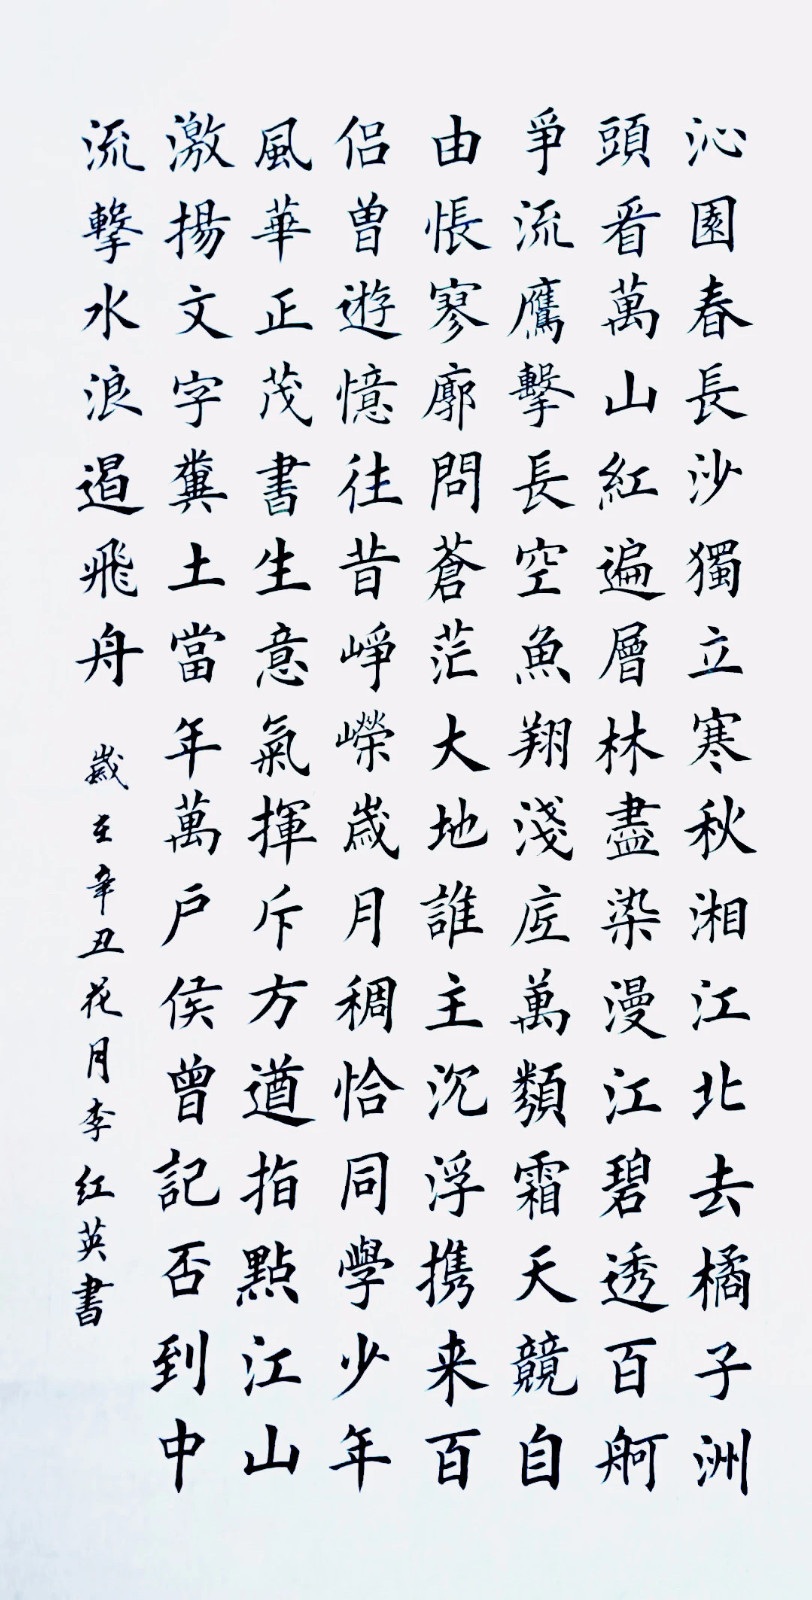 沁園春長沙獨立寒秋湘江北去橘子洲
頭看萬山紅遍層林盡染漫江碧透百舸
爭流鷹擊長空魚翔淺底萬類霜天競自
由悵寥廓問蒼茫大地誰主沉浮携来百
侶曾遊憶往昔崢嶸歲月稠恰同學少年
風華正茂書生意氣揮斥方遒指點江山
激揚文字糞土當年萬戶侯曾記否到中
流擊水浪遏飛舟
歲在辛丑花月李红英書